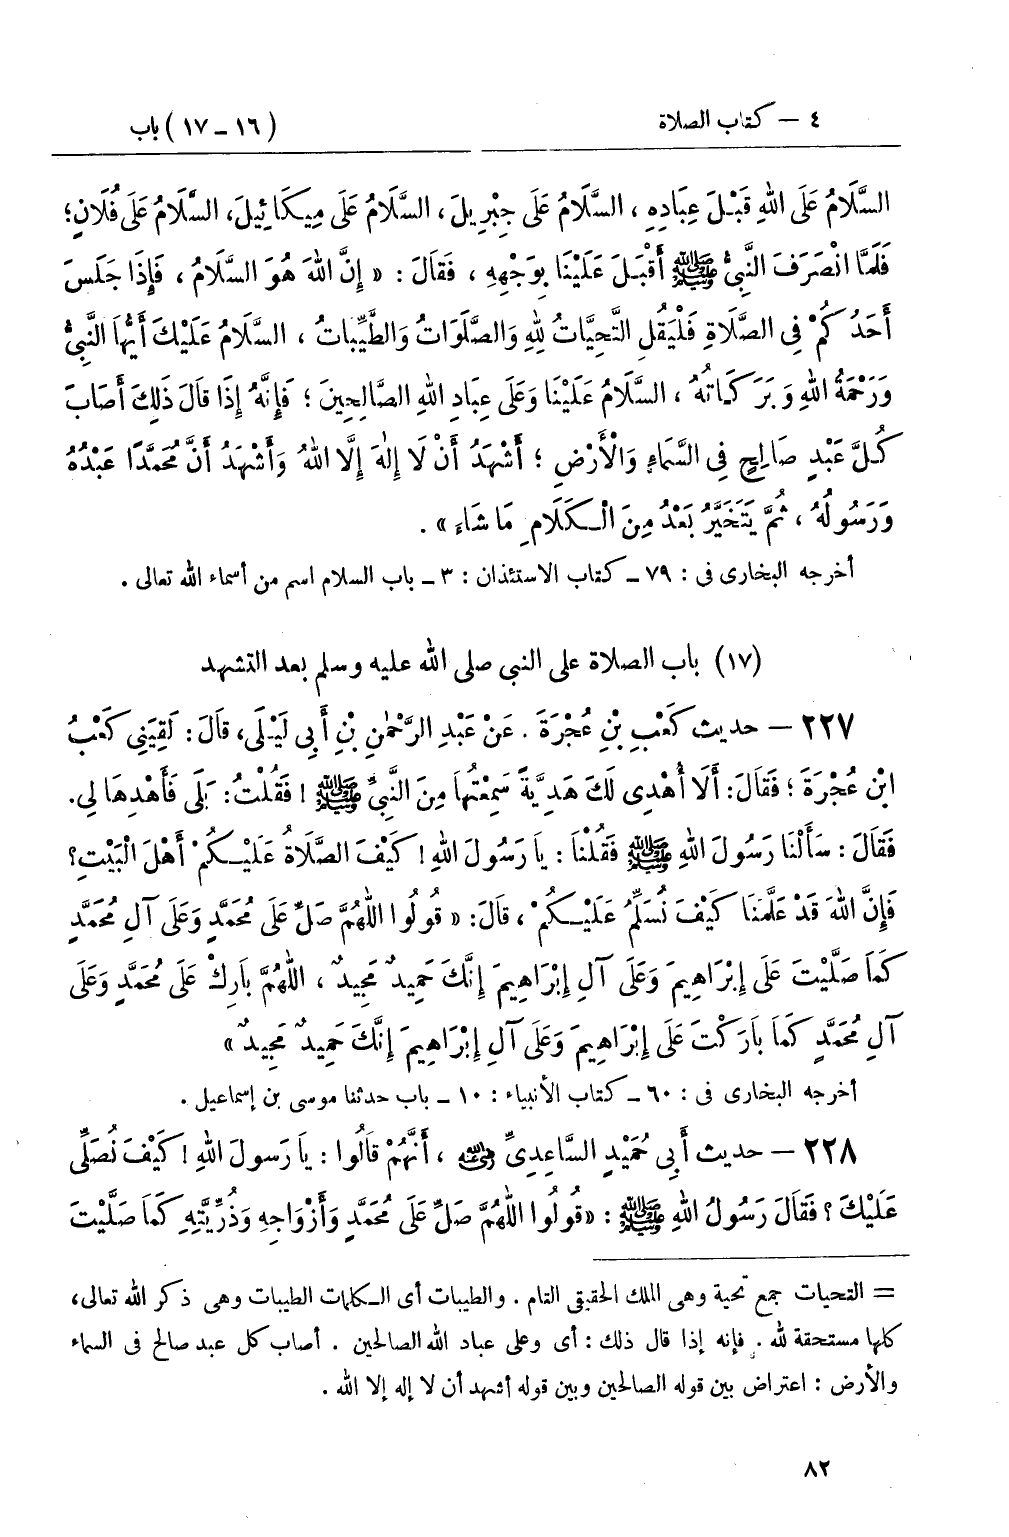 ٤ — كتاب الصلاة
(١٦ – ١٧) باب
السَّلَامُ عَلَى اللهِ قَبْلَ عِبَادِهِ ، السَّلَامُ عَلَى جِبْرِيلَ، السَّلَامُ عَلَى مِيكَائِيلَ، السَّلَامُ عَلَى فُلَانٍ؛
فَلَمَّا انْصَرَفَ النَّبِيُّ ﷺ أَقْبَلَ عَلَيْنَا بِوَجْهِهِ ، فَقَالَ : « إِنَّ اللهَ هُوَ السَّلَامُ ، فَإِذَا جَلَسَ
أَحَدُكُمْ فِي الصَّلَاةِ فَلْيَقُلِ التَّحِيَّاتُ لِلهِ وَالصَّلَوَاتُ وَالطَّيِّبَاتُ ، السَّلَامُ عَلَيْكَ أَيُّهَا النَّبِيُّ
وَرَحْمَةُ اللهِ وَبَرَكَاتُهُ ، السَّلَامُ عَلَيْنَا وَعَلَى عِبَادِ اللهِ الصَّالِحِينَ ؛ فَإِنَّهُ إِذَا قَالَ ذَلِكَ أَصَابَ
كُلَّ عَبْدٍ صَالِحٍ فِي السَّمَاءِ وَالْأَرْضِ ؛ أَشْهَدُ أَنْ لَا إِلٰهَ إِلَّا اللهُ وَأَشْهَدُ أَنَّ مُحَمَّدًا عَبْدُهُ
وَرَسُولُهُ ، ثُمَّ يَتَخَيَّرُ بَعْدُ مِنَ الْكَلَامِ مَا شَاءَ » .
أخرجه البخارى فى : ٧٩ – كتاب الاستئذان : ٣ – باب السلام اسم من أسماء الله تعالى .
(١٧) باب الصلاة على النبي صلى الله عليه وسلم بعد التشهد
٢٢٧ — حديث كَعْبِ بْنِ عُجْرَةَ . عَنْ عَبْدِ الرَّحْمٰنِ بْنِ أَبِي لَيْلَى، قَالَ : لَقِيَنِي كَعْبُ
ابْنُ عُجْرَةَ ؛ فَقَالَ: أَلَا أُهْدِى لَكَ هَدِيَّةً سَمِعْتُهَا مِنَ النَّبِيِّ ﷺ ! فَقُلْتُ: بَلَى فَأَهْدِهَا لِي.
فَقَالَ : سَأَلْنَا رَسُولَ اللهِ ﷺ فَقُلْنَا : يَا رَسُولَ اللهِ ! كَيْفَ الصَّلَاةُ عَلَيْكُمْ أَهْلَ الْبَيْتِ؟
فَإِنَّ اللهَ قَدْ عَلَّمَنَا كَيْفَ نُسَلِّمُ عَلَيْكُمْ ، قَالَ: « قُولُوا اللّٰهُمَّ صَلِّ عَلَى مُحَمَّدٍ وَعَلَى آلِ مُحَمَّدٍ
كَمَا صَلَّيْتَ عَلَى إِبْرَاهِيمَ وَعَلَى آلِ إِبْرَاهِيمَ إِنَّكَ حَمِيدٌ مَجِيدٌ ، اللّٰهُمَّ بَارِكْ عَلَى مُحَمَّدٍ وَعَلَى
آلِ مُحَمَّدٍ كَمَا بَارَكْتَ عَلَى إِبْرَاهِيمَ وَعَلَى آلِ إِبْرَاهِيمَ إِنَّكَ حَمِيدٌ مَجِيدٌ »
أخرجه البخارى فى : ٦٠ – كتاب الأنبياء : ١٠ – باب حدثنا موسى بن إسماعيل .
٢٢٨ — حديث أَبِي حُمَيْدٍ السَّاعِدِيِّ رضي الله عنه ، أَنَّهُمْ قَالُوا : يَا رَسُولَ اللهِ ! كَيْفَ نُصَلِّى
عَلَيْكَ ؟ فَقَالَ رَسُولُ اللهِ ﷺ : «قُولُوا اللّٰهُمَّ صَلِّ عَلَى مُحَمَّدٍ وَأَزْوَاجِهِ وَذُرِّيَّتِهِ كَمَا صَلَّيْتَ
= التحيات جمع تحية وهى الملك الحقيقى التام . والطيبات أى الكلمات الطيبات وهى ذكر الله تعالى،
كلها مستحقة لله . فإنه إذا قال ذلك : أى وعلى عباد الله الصالحين . أصاب كل عبد صالح فى السماء
والأرض : اعتراض بين قوله الصالحين وبين قوله أشهد أن لا إله إلا الله .
٨٢